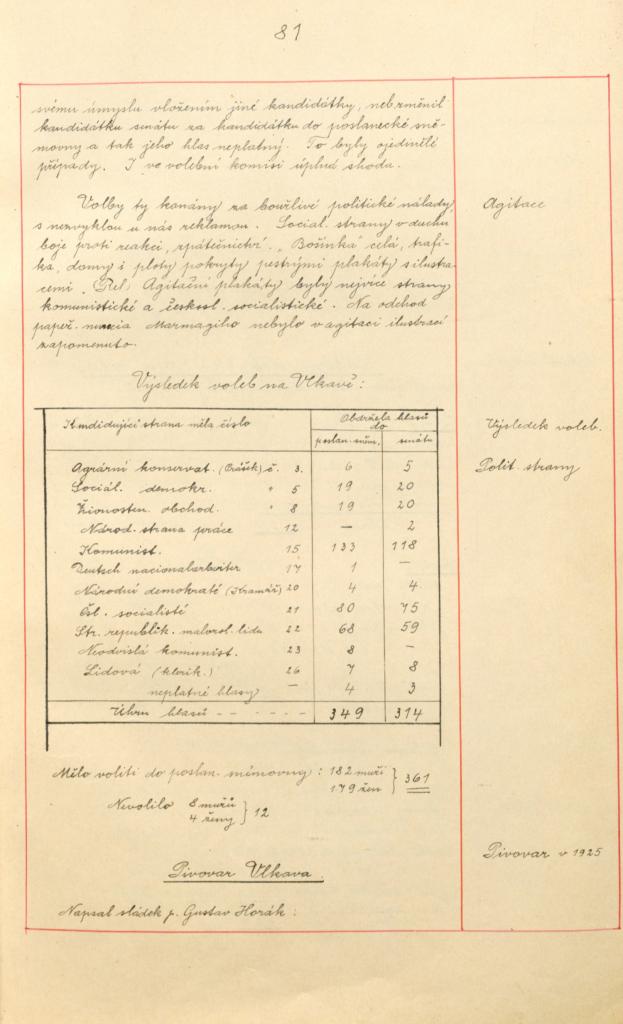 81
svému úmyslu vložením jiné kandidátky, neb změnil
kandidátku senátu za kandidátku do poslanecké sně-
movny a tak jeho hlas neplatný. To byly ojedinělé
případy. I ve volební komisi úplná shoda.
Volby ty konány za bouřlivé politické nálady,
s nezvyklou u nás reklamou. Social. strany v duchu
boje proti reakci, zpátečnictví. „Bošinka" celá, trafi-
ka, domy i ploty pokryty pestrými plakáty s ilustra-
cemi. Agitační plakáty byly nejvíce strany
komunistické a českosl. socialistické. Na odchod
papež. nuncia Marmagiho nebylo v agitaci ilustrací
zapomenuto.
Agitace
Výsledek voleb na Vlkavě:
Kandidující strana měla číslo
Obdržela hlasů
do
poslan. sněm. senátu
Výsledek voleb.
Polit. strany
Agrární konservat. (Prášik) č. 3. 6 5
Sociál. demokr. " 5 19 20
Živnosten. obchod. " 8 19 20
Národ. strana práce 12 — 2
Komunist. 15 133 118
Deutsch nacionalarbeiter 17 1 —
Národní demokraté (Kramář) 20 4 4
Čsl. socialisté 21 80 75
Str. republik. malorol. lidu 22 68 59
Neodvislá komunist. 23 8 -
Lidová (klerik.) 26 7 8
neplatné hlasy — 4 3
Úhrn hlasů - - - - - - 349 314
Mělo voliti do poslan. sněmovny: 182 muži
179 žen } 361
Nevolilo 8 mužů
4 ženy } 12
Pivovar v 1925
Pivovar Vlkava.
Napsal sládek p. Gustav Horák: